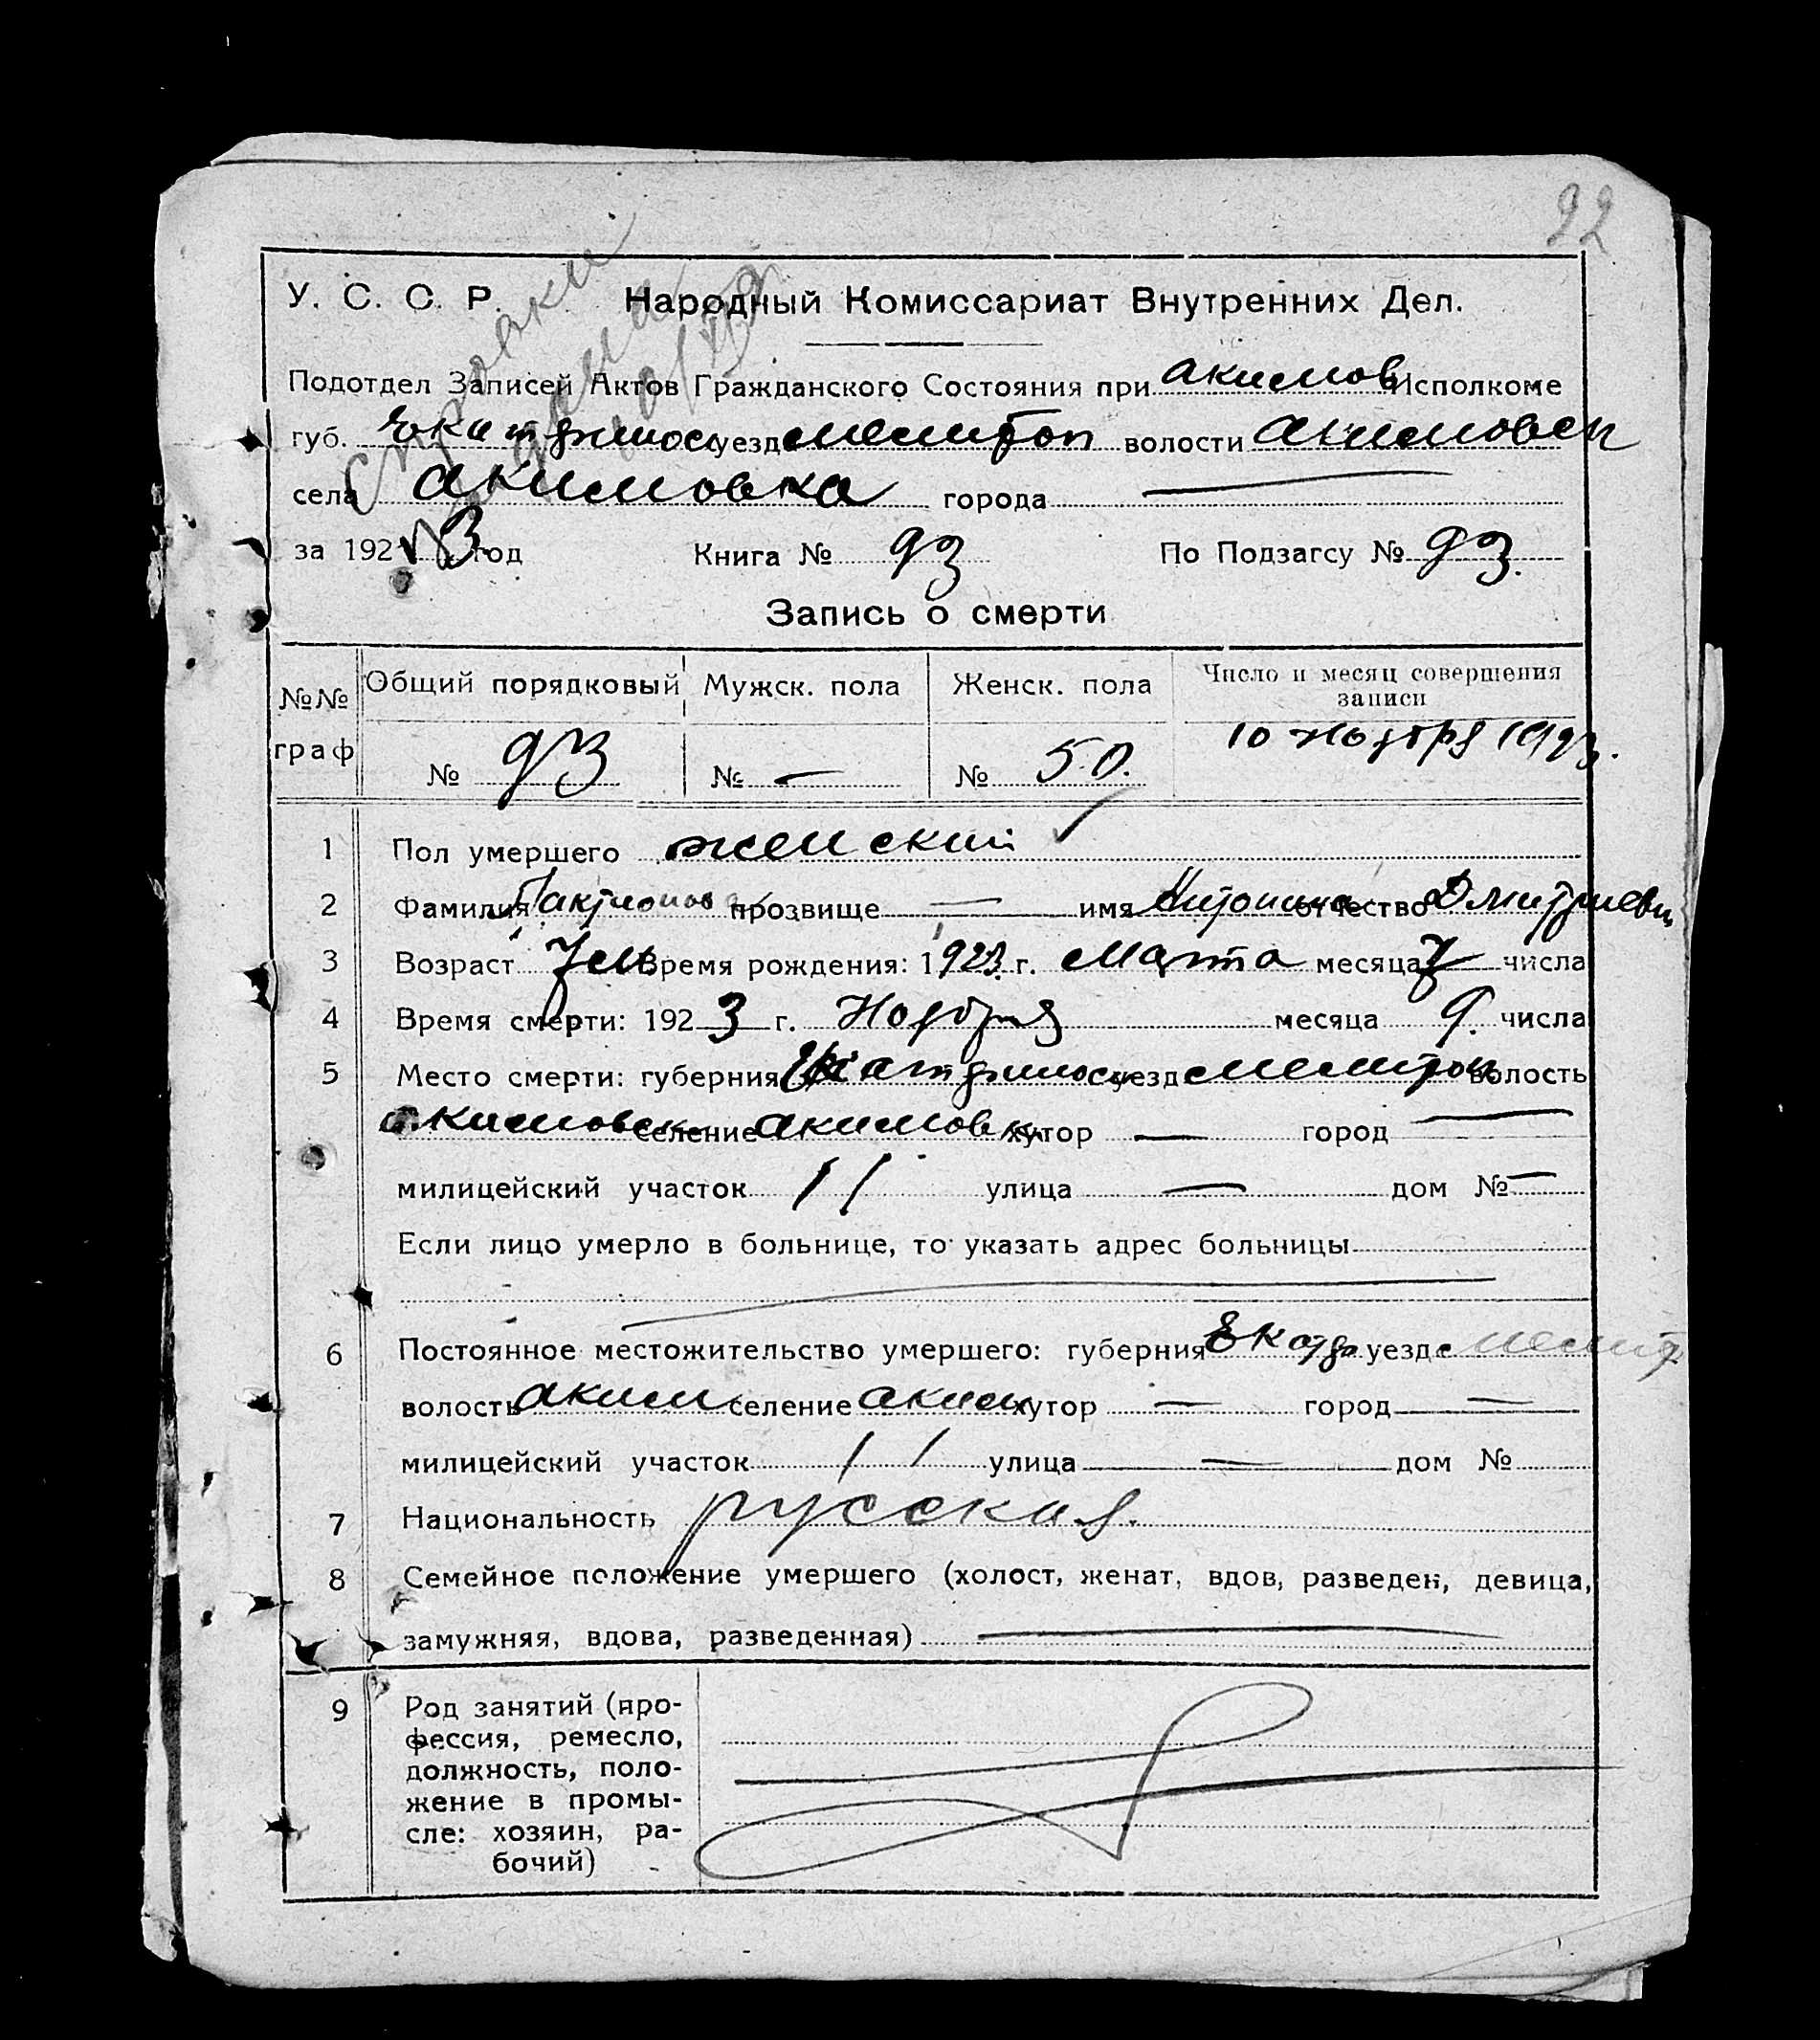 92
У. С. С. Р. Народный Комиссариат Внутренних Дел.
Подотдел Записей Актов Гражданского Состояния при Акимов Исполкоме
губ. Екатеринос уезд Мелитоп волости Акимовск
села Акимовка города —
за 1923 год Книга № 93 По Подзагсу № 93.
Запись о смерти
№№ граф Общий порядковый Мужск. пола Женск. пола Число и месяц совершения записи
№ 93 № — № 50. 10 Ноября 1923.
1 Пол умершего женский
2 Фамилия прозвище — имя Антонина отчество Дмитриевн
3 Возраст Время рождения: 1923 г. Марта месяца 7 числа
4 Время смерти: 1923 г. Ноября месяца 9. числа
5 Место смерти: губерния Екатеринос уезд Мелитоп волость
Акимовск селение Акимовк хутор — город —
милицейский участок 11 улица — дом № —
Если лицо умерло в больнице, то указать адрес больницы
6 Постоянное местожительство умершего: губерния Екатер уезд Мелит
волость Аким селение Аким хутор — город —
милицейский участок 11 улица — дом №
7 Национальность русская.
8 Семейное положение умершего (холост, женат, вдов, разведен, девица,
замужняя, вдова, разведенная) —
9 Род занятий (про-
фессия, ремесло,
должность, поло-
жение в промы-
сле: хозяин, ра-
бочий)